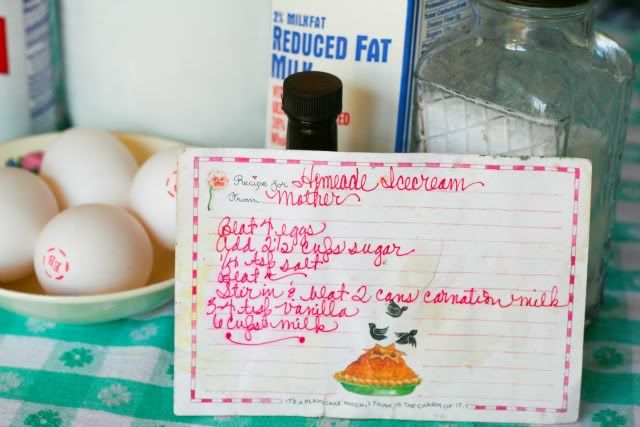 2% MILKFAT
REDUCED FAT
MILK
Recipe for Homeade Icecream
From Mother
Beat 4 eggs
Add 2 1/2 cups sugar
1/4 tsp salt
Beat
Stir in & beat 2 cans carnation milk
3-4 tsp vanilla
6 cups milk
IT'S A PLAIN CAKE WHICH, I THINK, IS THE CHARM OF IT.
EB